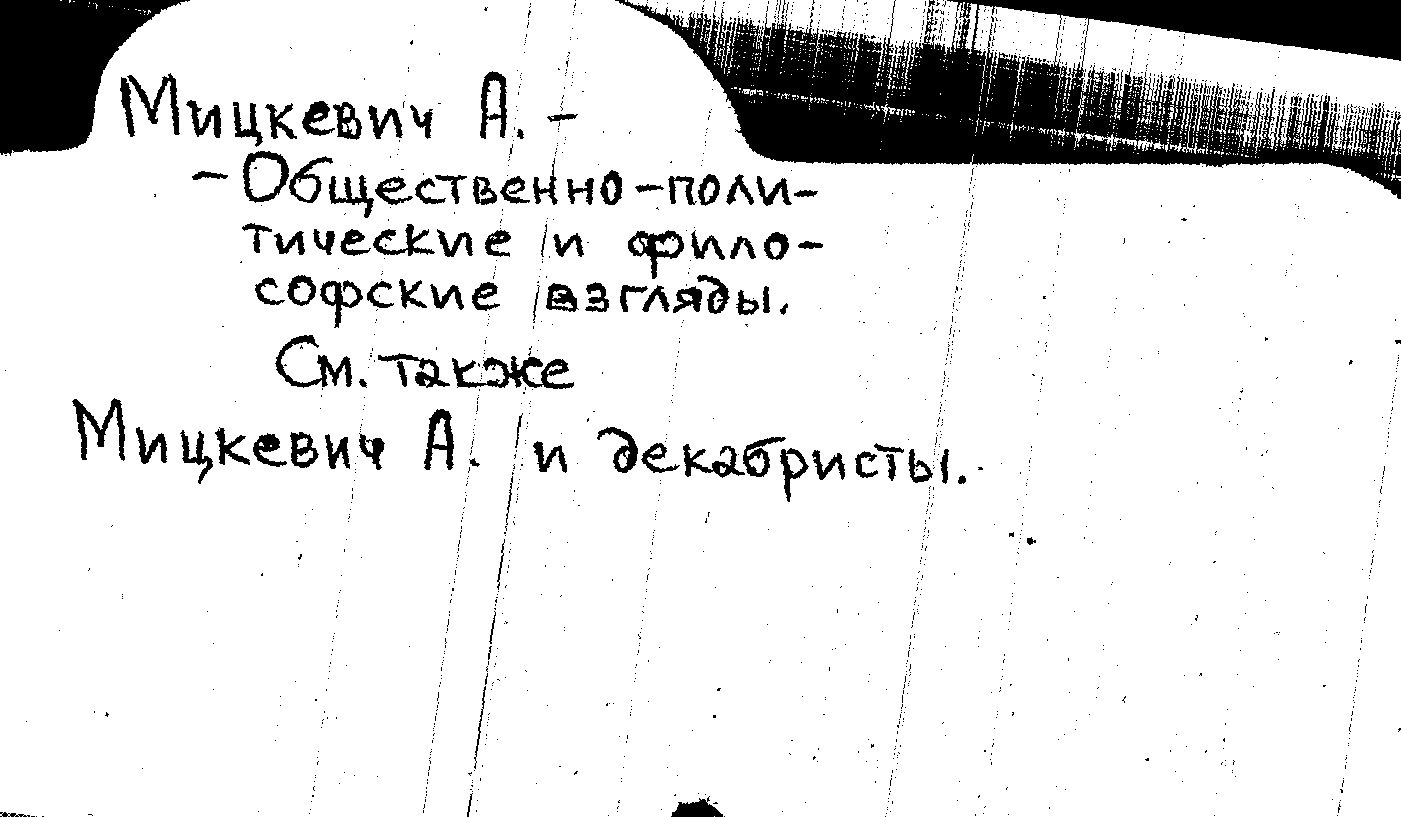 Мицкевич А. –
– Общественно-поли-
тические и фило-
софские взгляды.
См. также
Мицкевич А. и декабристы.